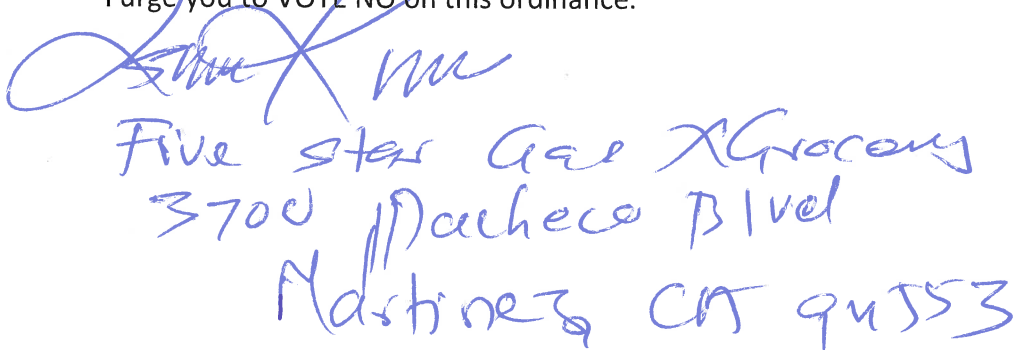 I urge you to VOTE NO on this ordinance.
Five star Gas & Grocery
3700 Pacheco Blvd
Martinez CA 94553